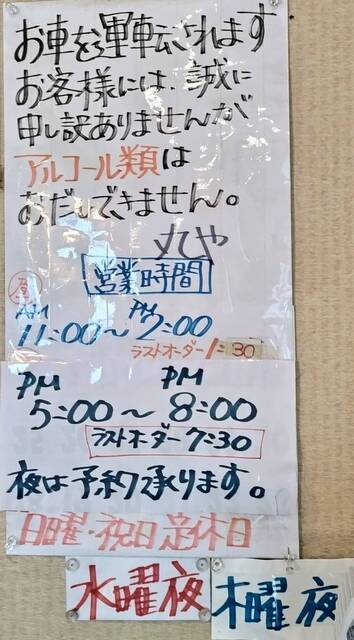 お車を運転されます
お客様には、誠に
申し訳ありませんが
アルコール類は
おだしできません。
丸や
営業時間
昼
AM 11:00～PM 2:00
ラストオーダー1:30
PM 5:00～PM 8:00
ラストオーダー7:30
夜は予約承ります。
日曜・祝日定休日
水曜夜
木曜夜